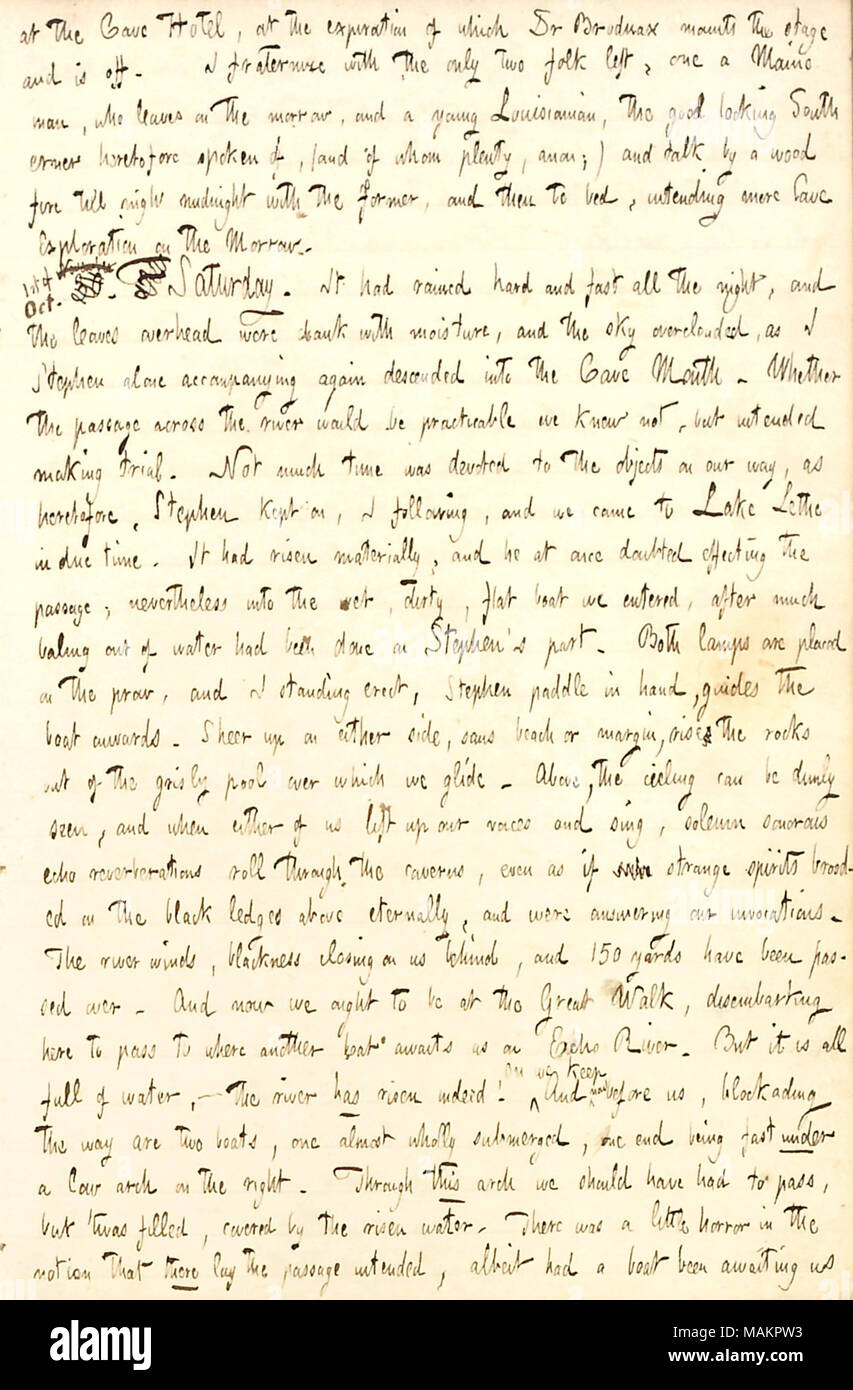 at the Cave Hotel, at the expiration of which Dr Brodnax mounts the stage
and is off. I fraternise with the only two folk left, one a Maine
man, who leaves on the morrow, and a young Louisianian, the good looking South
erner heretofore spoken of, (and of whom plenty, anon;) and talk by a wood
fire till nigh midnight with the former, and then to bed, intending more Cave
Exploration on the Morrow.
1st Oct. Saturday. It had rained hard and fast all the night, and
the leaves overhead were dank with moisture, and the sky overclouded, as I
Stephen alone accompanying again descended into the Cave Mouth. Whether
the passage across the river would be practicable we knew not, but intended
making trial. Not much time was devoted to the objects on our way, as
heretofore, Stephen kept on, I following, and we came to Lake Lethe
in due time. It had risen materially, and he at once doubted effecting the
passage; nevertheless into the wet, dirty, flat boat we entered, after much
baling out of water had been done on Stephen's part. Both lamps are placed
on the prow, and I standing erect, Stephen paddle in hand, guides the
boat onwards. Sheer up on either side, sans beach or margin, rise the rocks
out of the grisly pool over which we glide. Above, the ceiling can be dimly
seen, and when either of us lift up our voices and sing, solemn sonorous
echo reverberations roll through the caverns, even as if strange spirits brood-
ed on the black ledges above eternally, and were answering our invocations.
The river winds, blackness closing on us behind, and 150 yards have been pas-
sed over. And now we ought to be at the Great Walk, disembarking
here to pass to where another boat awaits us on Echo River. But it is all
full of water, — the river has risen indeed! On we keep And now before us, blockading
the way are two boats, one almost wholly submerged, one end being fast under
a low arch on the right. Through this arch we should have had to pass,
but 'twas filled, covered by the risen water. There was a little horror in the
notion that there lay the passage intended, albeit had a boat been awaiting us
alamy
Image ID: MAKPW3
www.alamy.com